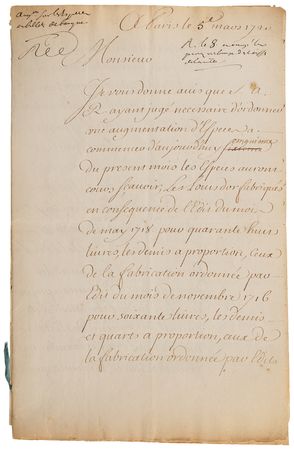 A Paris le 5e mars 1720
Monsieur
Je vous donne avis que S. A.
R. ayant jugé necessaire d'ordonner
une augmentation d'Especes a
commencer d'aujourd'huy cinquième
du present mois les Especes auront
cours scavoir, Les Louis d'or fabriqués
en consequence de l'Edit du mois
de may 1718 pour quarante huit
livres, les demis a proportion, ceux
de la fabrication ordonnée par
Edit du mois de novembre 1716
pour soixante livres, les demis
et quarts a proportion, ceux de
la fabrication ordonnée par l'Edit